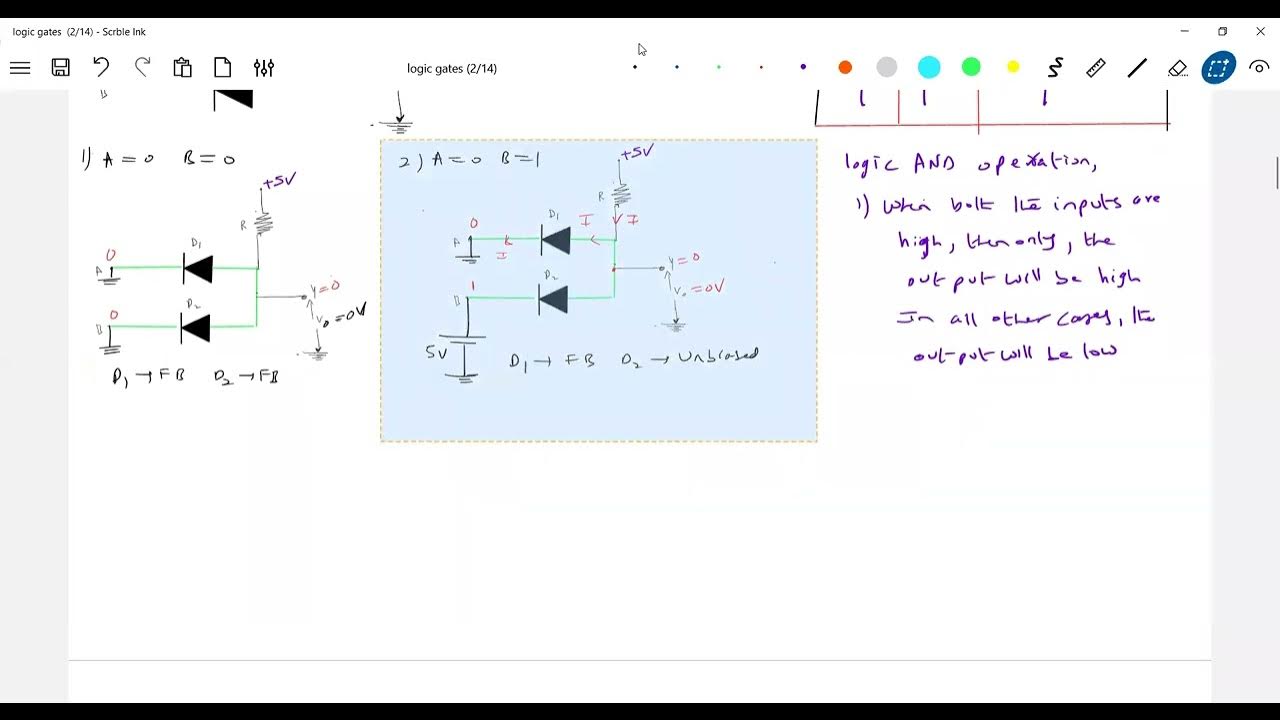 logic gates (2/14) - Scrble Ink
logic gates (2/14)
B
1 1 1
1) A = 0 B = 0
+5V
R
0
D1
A
0
D2
B
Y = 0
V0 = 0V
D1 → FB D2 → FB
2) A = 0 B = 1
+5V
R
I I
0
D1
A
I
1
D2
B
Y = 0
V0 = 0V
5V
D1 → FB D2 → Unbiased
logic AND operation,
1) When both the inputs are
high, then only, the
output will be high
In all other cases, the
output will be low